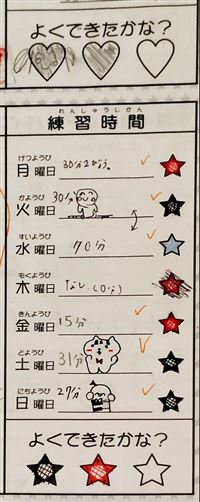 よくできたかな？
れんしゅうじかん
練習時間
げつようび
月曜日 30分2び。
かようび
火曜日 30分
すいようび
水曜日 70分
もくようび
木曜日 なし(0分)
きんようび
金曜日 15分
どようび
土曜日 31分
にちようび
日曜日 27分
よくできたかな？